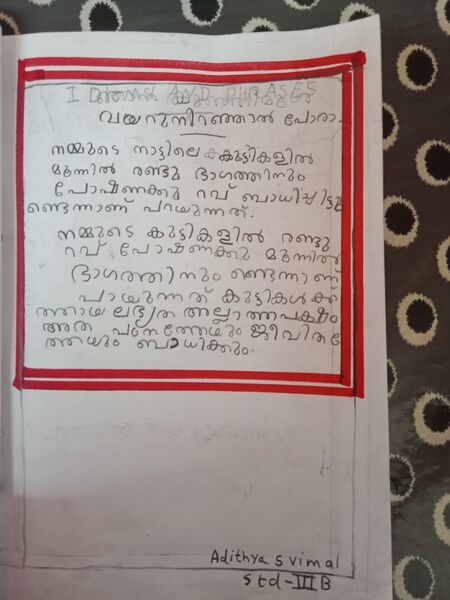 IDIOMS AND PHRASES
വയറുനിറഞ്ഞാൽ പോരാ..
നമ്മുടെ നാട്ടിലെ കുട്ടികളിൽ
മൂന്നിൽ രണ്ടു ഭാഗത്തിനും
പോഷണക്കു റവ് ബാധിച്ചിട്ടു
ണ്ടെന്നാണ് പറയുന്നത്.
നമ്മുടെ കുട്ടികളിൽ രണ്ടു
റവ് പോഷണക്കു മൂന്നിൽ
ഭാഗത്തിനും ണ്ടെന്നാണ്
പായുന്നത് കുട്ടികൾക്ക്
ത്തായ ലഭ്യത അല്ലാത്തപക്ഷം
അത പഠനത്തേയും ജീവിതത്തേ
ത്തയും ബാധിക്കും.
Adithya s vimal
std-III B